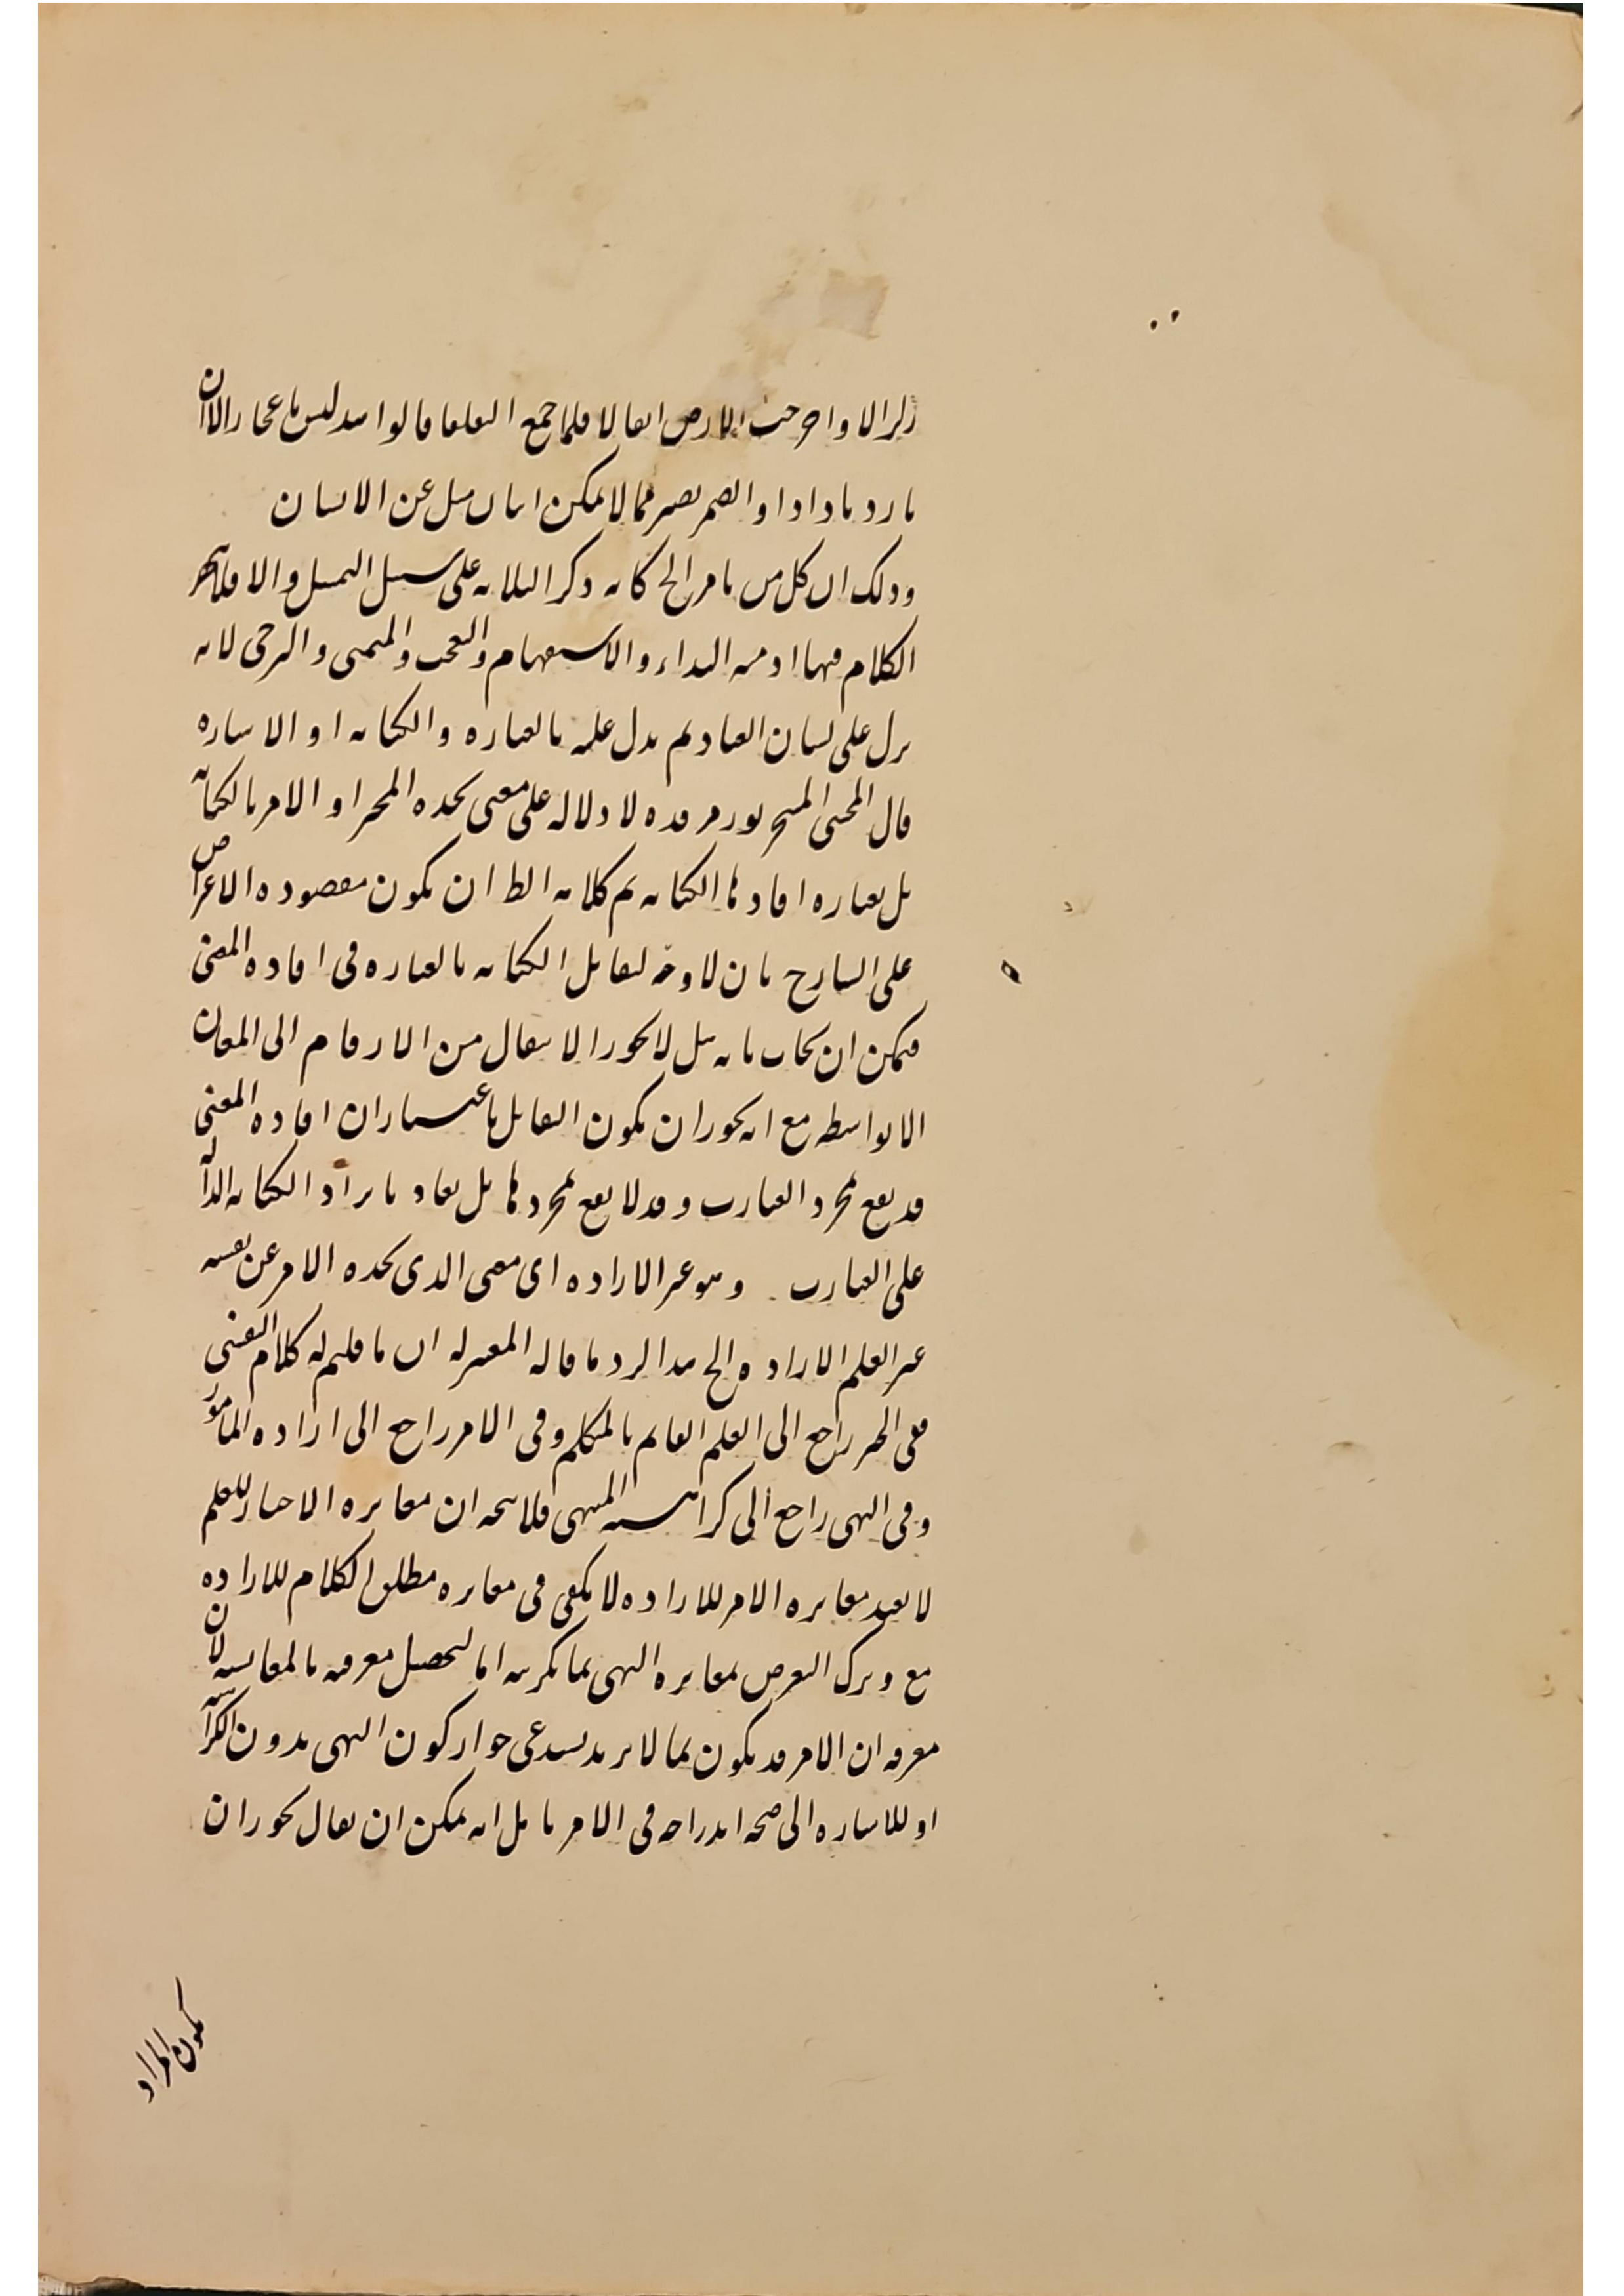 زلزالا واخرجت الارض اثقالا فلما جمع البلغا قالوا هذا ليس باعجاز الا ان
وذلك ان كل من يامر الخ كانه ذكر الثلاثه على سبيل التمثيل والا فلا ينحصر
الكلام فيها اذ منه النداء والاستفهام والتعجب والتمنى والترجى لانه
نزل على لسان العباد ثم يدل عليه بالعباره والكتابه او الاشاره
قال المحشى لا دلاله على معنى يجده المخبر او الامر بالكتابه
بل بعباره افادتها الكتابه تم كلامه الظ ان يكون مقصوده الاعتراض
على الشارح بان لا وجه لتقابل الكتابه بالعباره فى افاده المعنى
فيمكن ان يجاب بانه قيل لا يجوز الانتقال من الارقام الى المعان
الا بواسطه مع انه يجوز ان يكون التقابل باعتبار ان افاده المعنى
قد يقع بمجرد العبارت وقد لا يقع بمجردها بل يفاد بايراد الكتابه الداله
على العبارت وهو غير الاراده اى معنى الذى يجده الامر عن نفسه
غير العلم الاراده الخ هذا لرد ما قاله المعتزله ان ما قلتم له كلام النفسى
ففى الخبر راجع الى العلم القائم بالمتكلم وفى الامر راجع الى اراده المامور
وفى النهى راجع الى كراهيه المنهى فلا يتجه ان مغايره الاخبار للعلم
لا يفيد مغايره الامر للاراده لا يكفى فى مغايره مطلق الكلام للاراده
مع وترك التعرض لمغايره النهى بما يكرهه اما لتحصيل معرفته بالمقايسه لان
معرفه ان الامر قد يكون بما لا يريد يستدعى جواز كون النهى بدون الكراهه
او للاشاره الى صحه اندراجه فى الامر بل انه يمكن ان يقال يجوز ان
يكون المراد